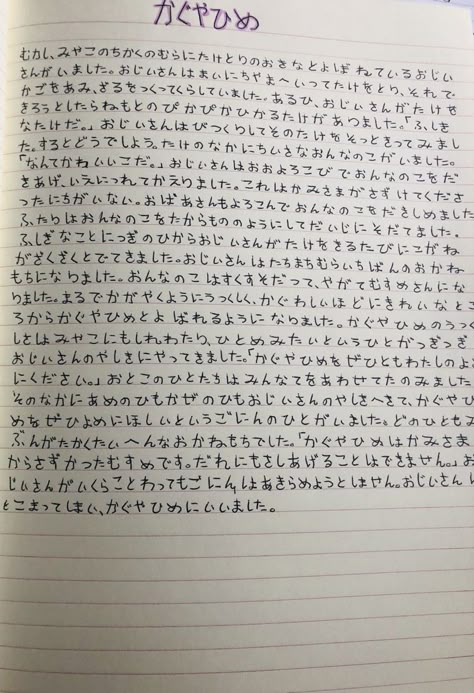 かぐやひめ
むかし、みやこのちかくのむらにたけとりのおきなとよばねているおじい
さんがいました。おじいさんはまいにちやまへいってたけをとり、それで
かごをあみ、ざるをつくってくらしていました。あるひ、おじいさんがたけを
きろうとしたらねもとのぴかぴかひかるたけがあつました。「ふしぎ
なたけだ。」おじいさんはびつくりしてそのたけをそっときってみまし
た。するとどうでしよう。たけのなかにちいさなおんなのこがいました。
「なんてかわいいこだ。」おじいさんはおおよろこびでおんなのこをだ
きあげ、いえにつれてかえりました。これはかみさまがさずけてくださ
ったにちがいない。おばあさんもよろこんでおんなのこをだきしめました
ふたりはおんなのこをたからもののようにしてだいじにそだてました。
ふしぎなことにつぎのひからおじいさんがたけをきるたびにこがね
がざくざくとでてきました。おじいさんはたちまちむらいちばんのおかね
もちになりました。おんなのこはすくすそだつて、やがてむすめさんにな
りました。まるでかがやくようにうつくしく、かぐわしいほどにきれいなとこ
ろからかぐやひめとよばれるようになりました。かぐやひめのうつ
しさはみやこにもしれわたり、ひとめみたいというひとがつぎつぎ
おじいさんのやしきにやってきました。「かぐやひめをぜひともわたしのよ
にください。」おとこのひとたちはみんなてをあわせてたのみました
そのなかにあめのひもかぜのひもおじいさんのやしきへきて、かぐやひ
めをぜひよめにほしいというごにんのひとがいました。どのひともみ
ぶんがたかくたいへんなおかねもちでした。「かぐやひめはかみさま
からさずかったむすめです。だれにもさしあげることはできません。」お
じいさんがいくらことわってもごにんはあきらめようとしません。おじいさん
とこまってしまい、かぐやひめにいいました。